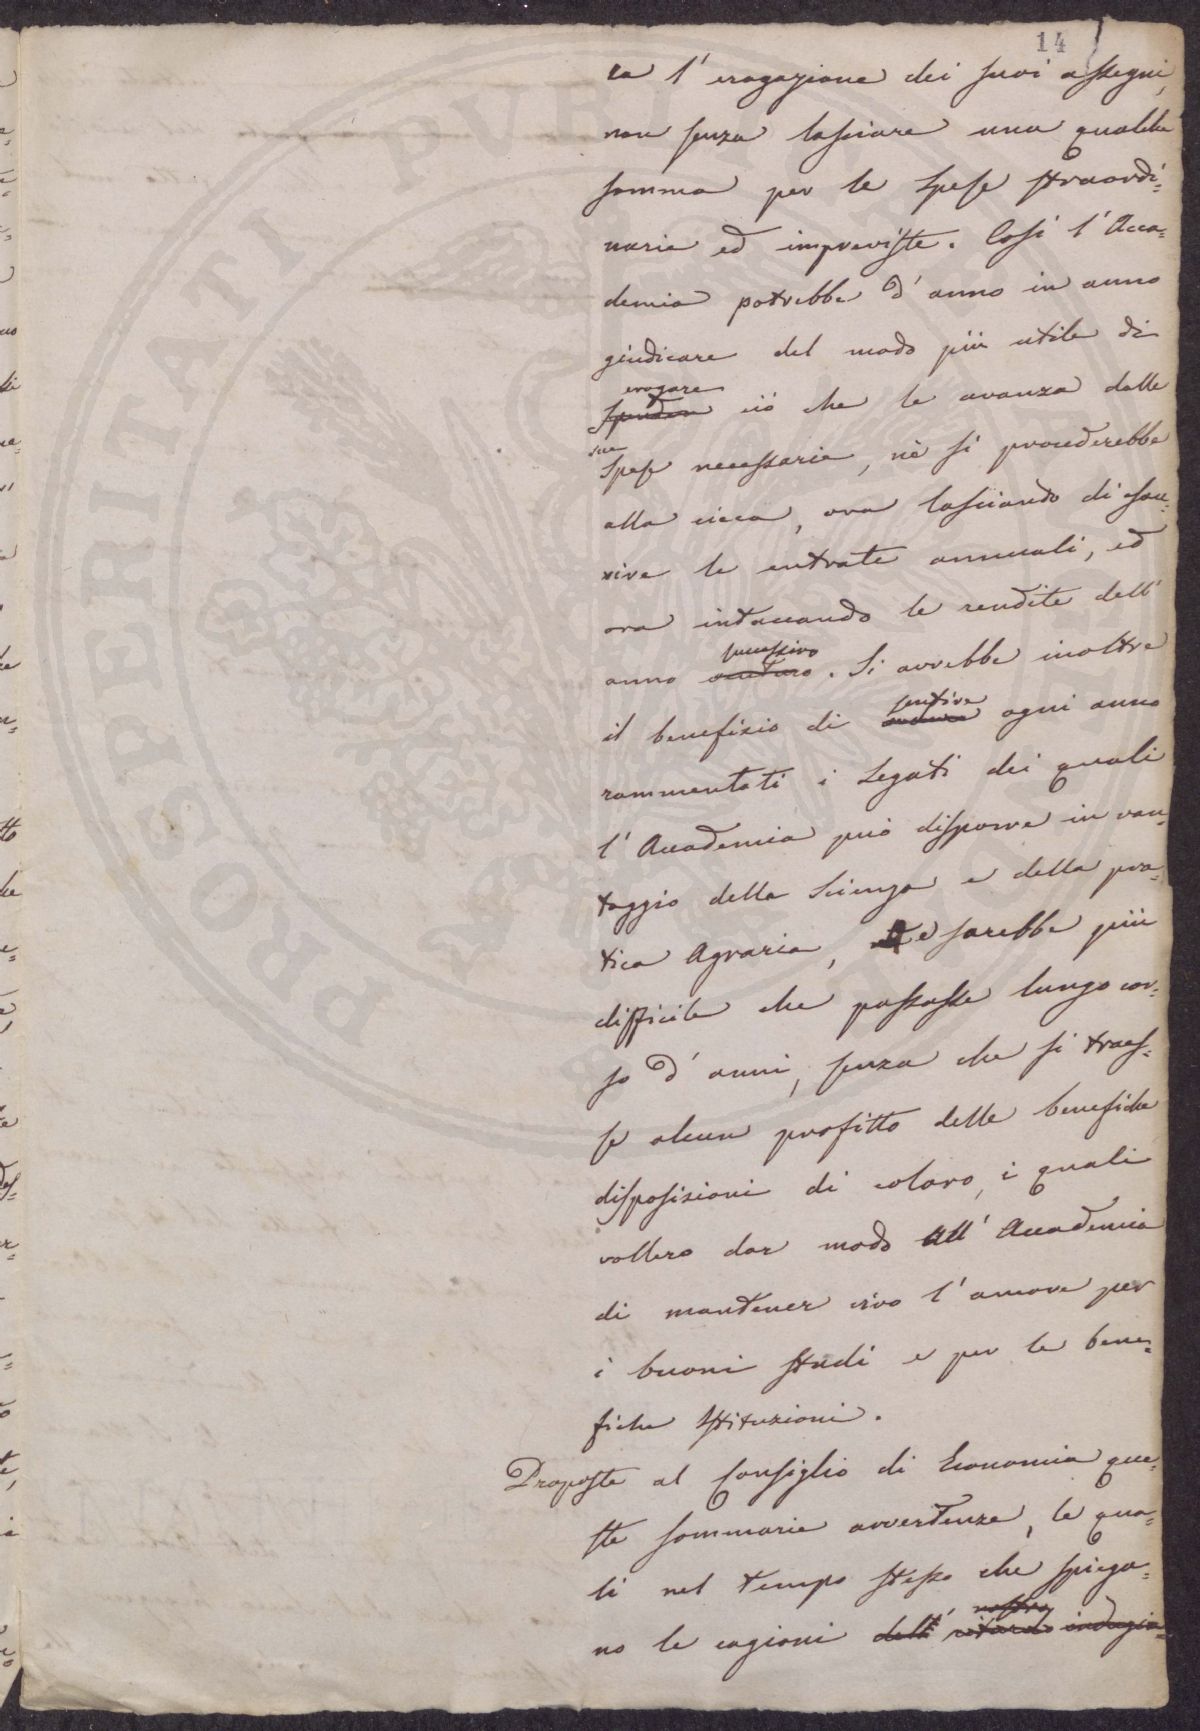 14
ra l'erogazione dei suoi assegni,
non senza lasciare una qualche
somma per le spese straordi=
narie ed impreviste. Così l'Acca=
demia potrebbe d'anno in anno
giudicare del modo più utile di
erogare
spendere ciò che le avanza dalle
sue
spese necessarie, nè si procederebbe
alla cieca, ora lasciando di esau=
rire le entrate annuali, ed
ora intaccando le rendite dell'
successivo
anno venturo. Si avrebbe inoltre
sentire
il benefizio di ogni anno
rammentati i Legati dei quali
l'Accademia può disporre in van=
taggio della Scienza e della pra=
tica Agraria, e sarebbe più
difficile che passasse lungo cor=
so d'anni, senza che si traes=
se alcun profitto delle benefiche
disposizioni di coloro, i quali
vollero dar modo all'Accademia
di mantener vivo l'amore per
i buoni studi e per le bene=
fiche istituzioni.
Proposte al Consiglio di Economia que=
ste sommarie avvertenze, le qua=
li nel tempo stesso che spiega=
nostro
no le cagioni dell' ritardo indugio
PROSPERITATI PVBLICAE